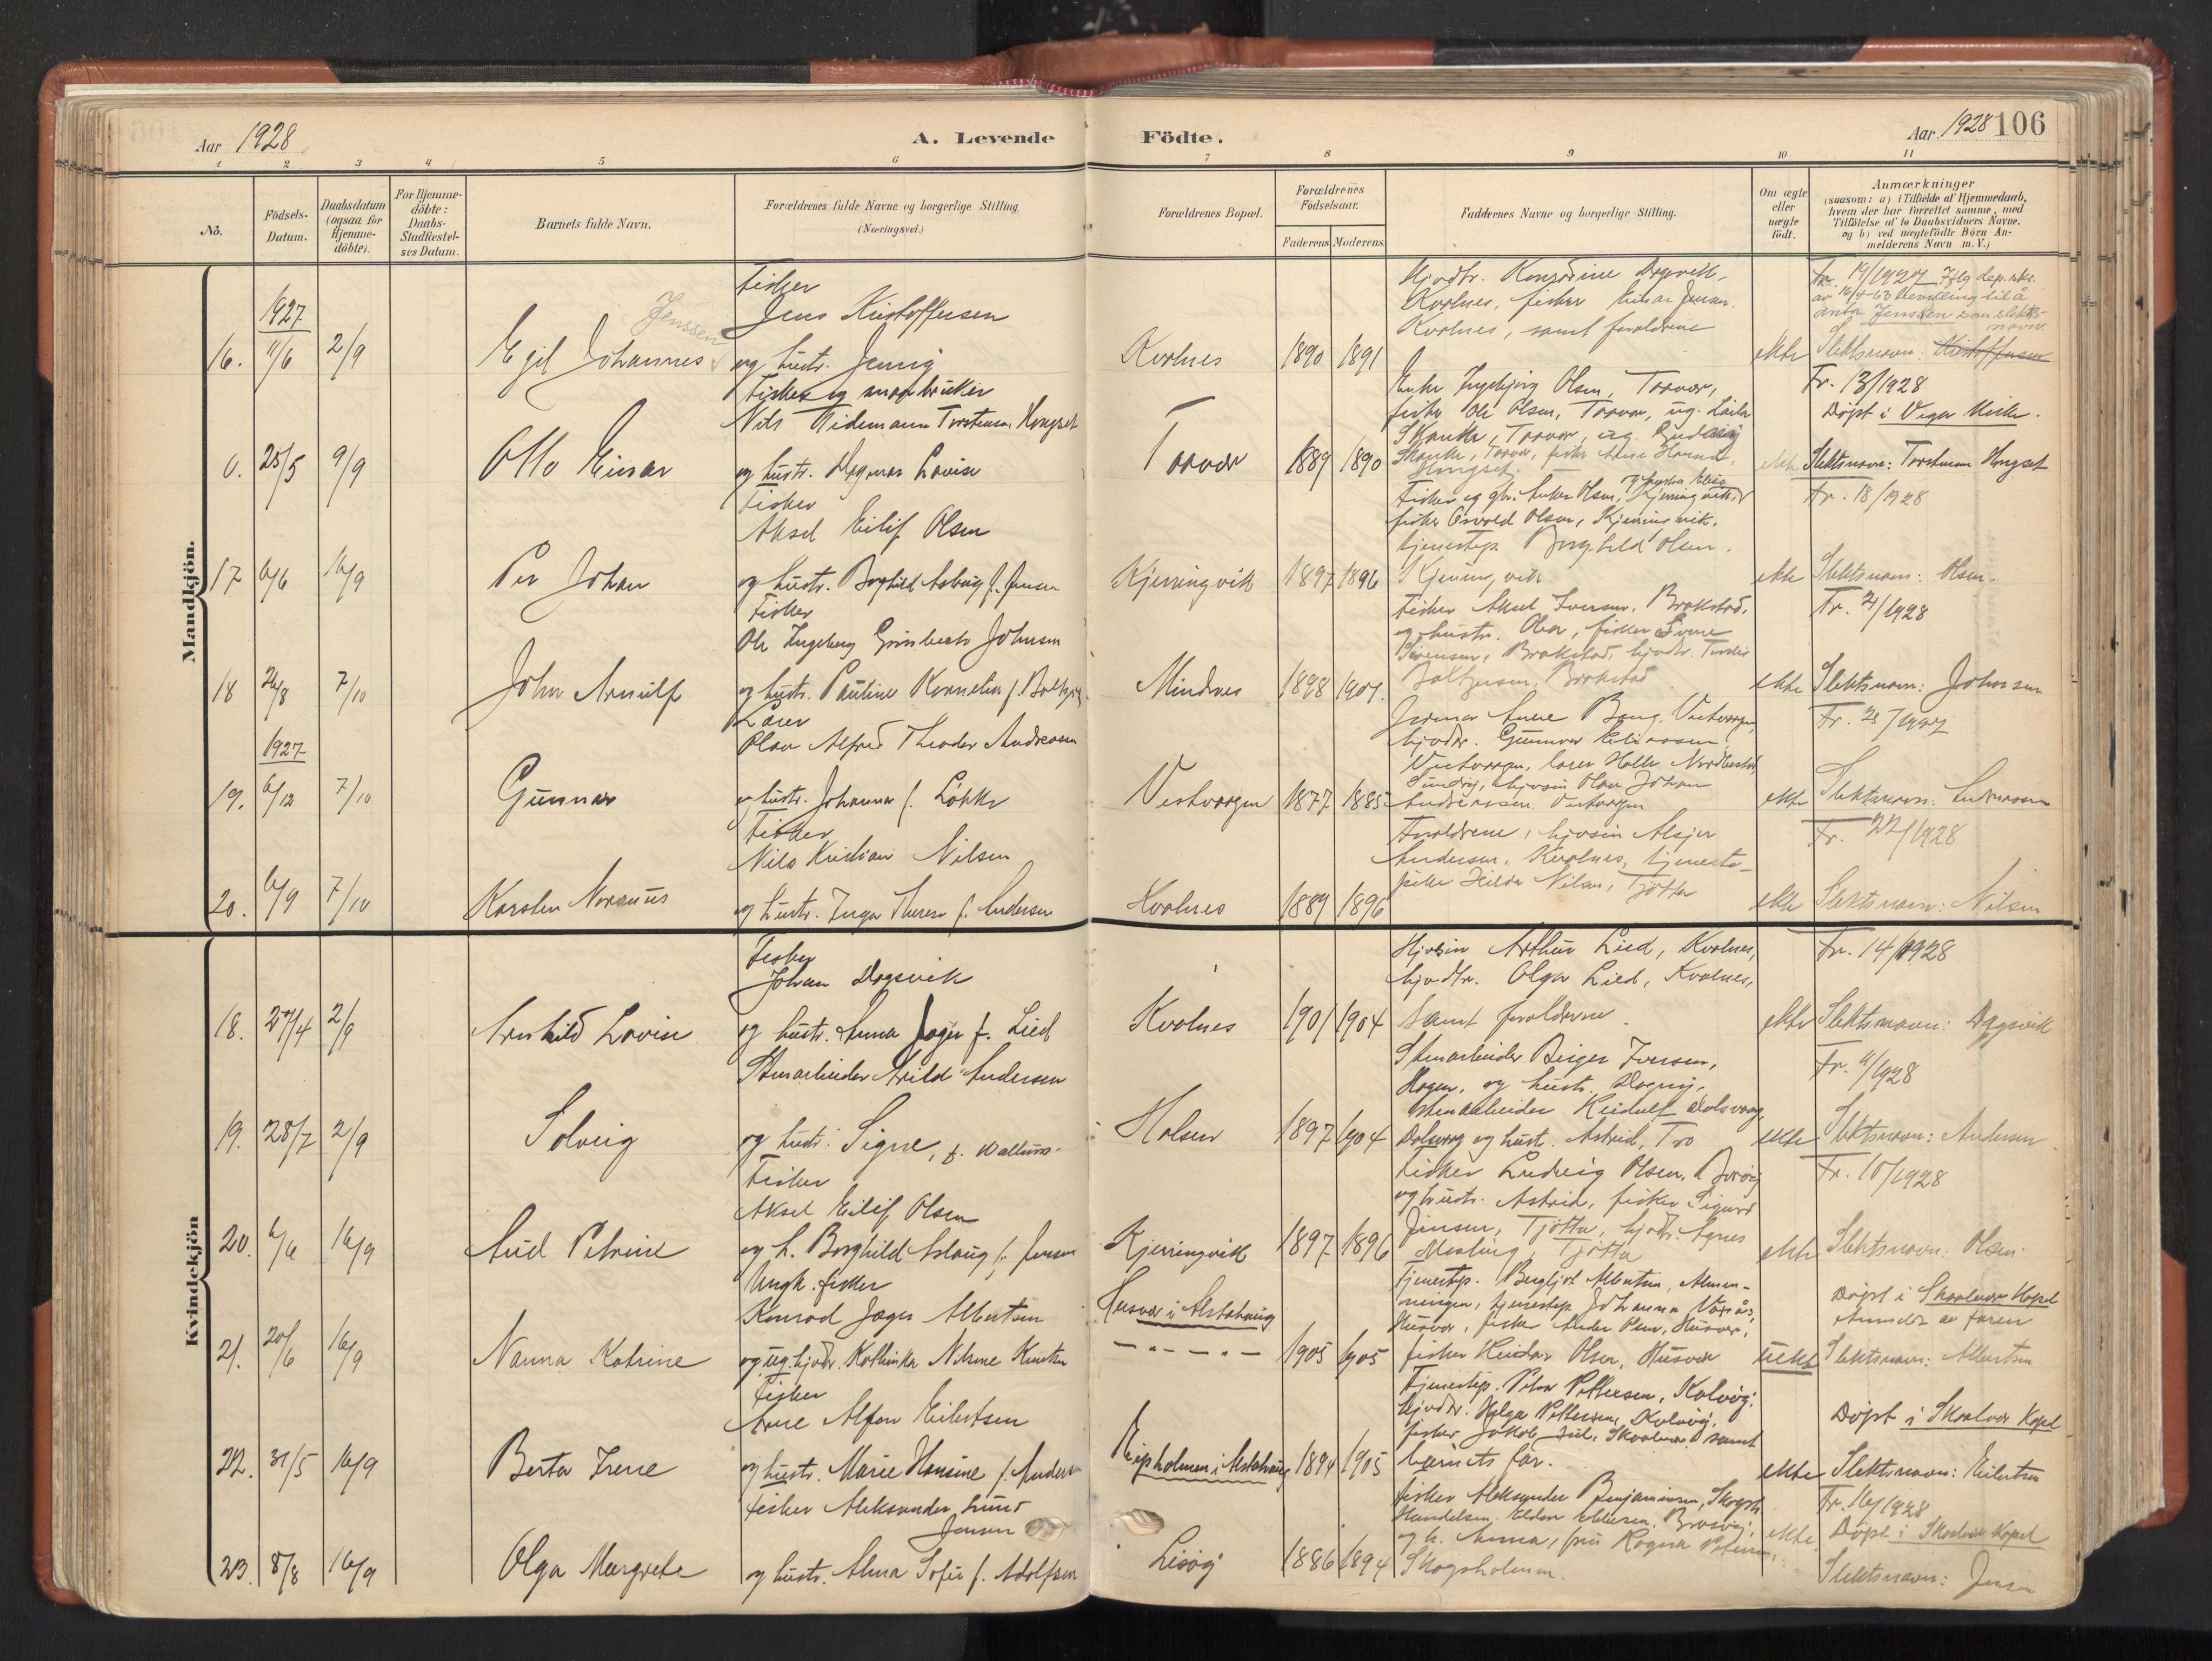 Aar 1928
A. Levende
Födte.
Aar 1928 106
1 2 3 4 5 6 7 8 9 10 11
No.
Födsels-
Datum.
Daabsdatum
(ogsaa for
Hjemme-
döbte).
For Hjemme-
döbte:
Daabs-
Stadfæstel-
ses Datum.
Barnets fulde Navn.
Forældrenes fulde Navne og borgerlige Stilling
(Næringsvei.)
Forældrenes Bopæl.
Forældrenes
Födselsaar.
Faderens Moderens
Faddernes Navne og borgerlige Stilling.
Om ægte
eller
uægte
födt.
Anmærkninger
(saasom: a) i Tilfælde af Hjemmedaab,
hvem der har forrettet samme, med
Tilföielse af to Daabsvidners Navne.
og b) ved uægtefödte Börn An-
melderens Navn m. V.)
Mandkjön.
1927
16. 11/6 2/9
Egil Johannes Jenssen
Fisker
Jens Kristoffersen
og hustr. Jenny
Kvalnes
1890 1891
Kvalnes, fisker Einar Jensen,
Kvalnes, samt foreldrene
ekte
Fr. 19/1927 Iflg dep. skr.
av 16/4-63 bevilling til å
anta Jenssen som slekts-
navn.
Slektsnavn: Kristoffersen
0. 25/5 9/9
Otto Einar
Fisker og smaabruker
Nils Tidemann Torstensen Hongset
og hustr. Dagmar Lovise
Toavær
1889 1890
Enke Ingebjørg Olsen, Toavær,
fisker Ole Olsen, Toavær, ug. Laila
Skanke, Toavær, ug.
Hongset.
ekte
Fr. 13/1928
Døpt i Vega kirke.
Slektsnavn: Torstensen Hongset
17 6/6 16/9
Per Johan
Fisker
Aksel Eilif Olsen
og hustr. Borghild Aslaug f. Jensen
Kjerringvik
1897 1896
Fisker og gbr. Anker Olsen, Kjerringvik,
fisker Osvald Olsen, Kjerringvik,
tjenestep. Borghild Olsen,
Kjerringvik
ekte
Fr. 18/1928
Slektsnavn: Olsen.
18 26/8 7/10
John Arnulf
Fisker
Ole Ingeberg Grimbech Johnsen
og hustr. Pauline Kornelia f.
Mindnes
1898 1901.
Fisker Aksel Iversen, Brakstad,
og hustr. Olea, fisker Sverre
Sørensen, Brakstad, hjvdtr.
Baltzersen, Brakstad
ekte
Fr. 21/1928
Slektsnavn: Johnsen
1927
19. 6/12 7/10
Gunnar
Lærer
Olav Alfred Theodor Andreassen
og hustr. Johanna f. Løkke
Vestvaagen
1877 1885
hjvdtr. Gunnvor Eliassen,
Vestvaagen, lærer Halle
hjvsøn Olav Johan
Andreassen Vestvaagen
ekte
Slektsnavn: Andreassen
20. 6/9 7/10
Karsten Normus
Fisker
Nils Kristian Nilsen
og hustr. Inga Therese f. Andersen
Kvalnes
1889 1896
Foreldrene, hjvsøn
Andersen, Kvalnes, tjeneste-
pike Hilda Nilsen, Tjøtta
ekte
Fr. 22/1928
Slektsnavn: Nilsen
Kvindekjön
18. 27/4 2/9
Arnhild Lovise
Fisker
Johan Dagsvik
og hustr. Anna Jager f. Lied
Kvalnes
1901 1904
Hjvsøn Arthur Lied, Kvalnes,
hjvdtr. Olga Lied, Kvalnes,
samt foreldrene.
ekte
Fr. 14/1928
Slektsnavn: Dagsvik
19. 28/7 2/9
Solveig
Stenarbeider Arild Andersen
og hustr. Signe, f.
Holsen
1897 1904
Stenarbeider Birger Iversen,
Hagen, og hustr. Dagny,
stenarbeider
og hust. Astrid, Tro
ekte
Fr. 11/1928
Slektsnavn: Andersen
20. 6/6 16/9
Aud Petrine
Fisker
Aksel Eilif Olsen
og h. Borghild Aslaug f. Jensen
Kjerringvik
1897 1896
Fisker Ludvig Olsen,
og hustr. Astrid, fisker Sigurd
Jensen, Tjøtta, hjvdtr. Agnes
Tjøtta
ekte
Fr. 10/1928
Slektsnavn: Olsen.
21. 20/6 16/9
Nanna Katrine
Ungk. fisker
Konrad Jager Albertsen
og ug. hjvdtr. Kathinka Nilsine Knutsen
Husvær i Alstahaug
— „ — „ —
1905 1905
Tjenestep. Bergljot Albertsen, Almen-
ningen, tjenestep Johanna
Husvær, fisker Olsen, Husvær,
fisker Reidar Olsen, Husvær
uekte
Døpt i Skaalvær Kapel
Anmeldt av faren
Slektsnavn: Albertsen
22. 31/5 16/9
Berta Irene
Fisker
Arne Alfon Eilertsen
og hustr. Marie Hansine f. Anders
i Alstahaug
1894 1905
Tjenestep. Petra Pettersen, Kalvøy,
hjvdtr. Helga Pettersen, Kalvøy,
fisker Jakob Juul, Skaalvær samt
barnets far.
ekte
Døpt i Skaalvær Kapel
Slektsnavn: Eilertsen
23. 8/8 16/9
Olga Margrete
Fisker Aleksander Lund
Jensen
og hustr. Alma Sofie f. Adolfsen
Lisøy
1886 1894
Fisker Aleksander Benjaminsen,
og h. Anna, fru Ragna
Skogsholmen.
ekte
Fr. 16/1928
Døpt i Skaalvær Kapel
Slektsnavn: Jensen